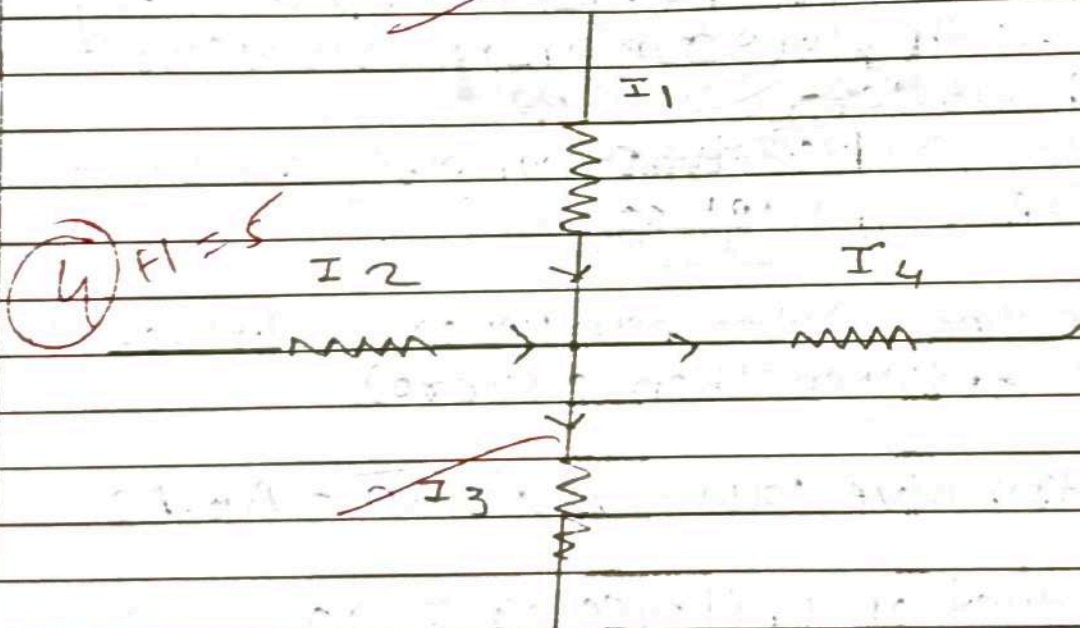 I1
4 +1 = 5
I2
I4
I3